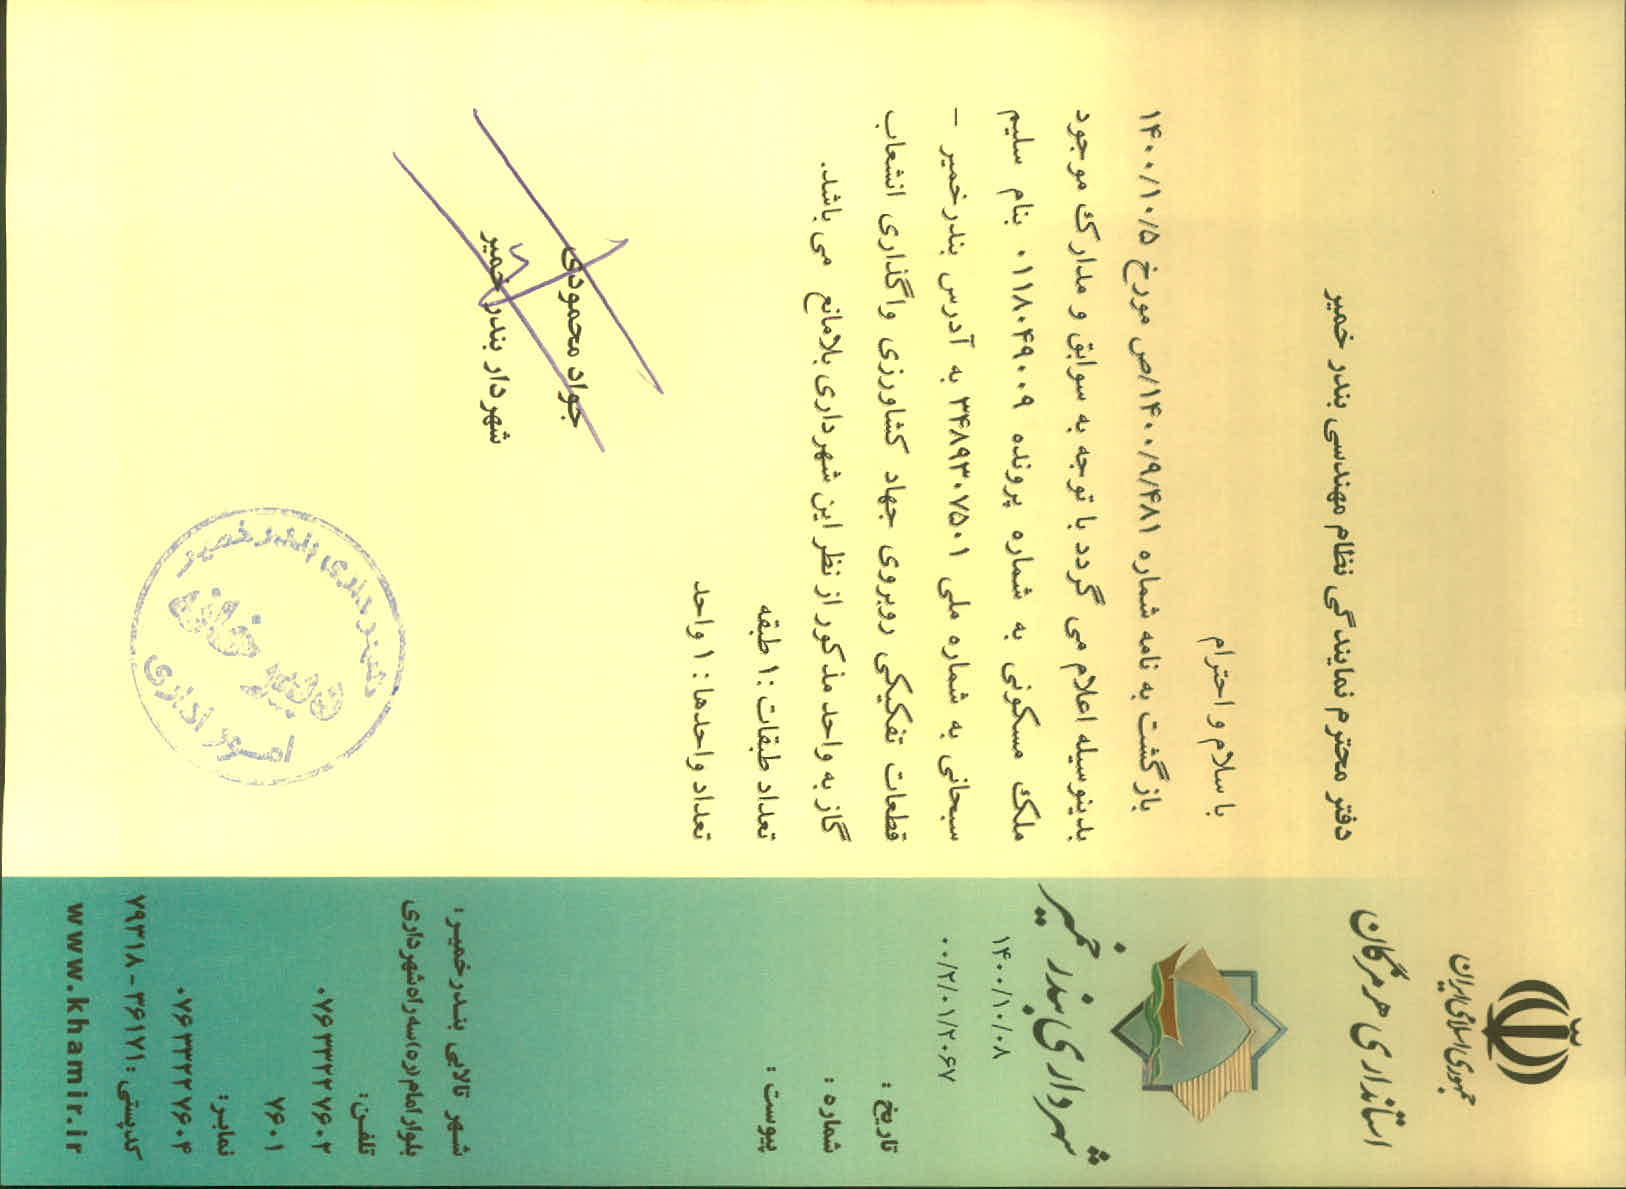 جمهوری اسلامی ایران
استانداری هرمزگان
شهرداری بندر خمیر
۱۴۰۰/۱۰/۰۸
۰۰/۲/۰۱/۲۰۶۷
تاریخ :
شماره :
پیوست :
دفتر محترم نمایندگی نظام مهندسی بندر خمیر
با سلام و احترام
بازگشت به نامه شماره ۱۴۰۰/۹/۴۸۱/ص مورخ ۱۴۰۰/۱۰/۵
بدینوسیله اعلام می گردد با توجه به سوابق و مدارک موجود
ملک مسکونی به شماره پرونده ۰۱۱۸۰۴۹۰۰۹ بنام سلیم
سبحانی به شماره ملی ۳۴۸۹۳۰۷۵۰۱ به آدرس بندرخمیر –
قطعات تفکیکی روبروی جهاد کشاورزی واگذاری انشعاب
گاز به واحد مذکور از نظر این شهرداری بلامانع می باشد.
تعداد طبقات : ۱ طبقه
تعداد واحدها : ۱ واحد
جواد محمودی
شهردار بندر خمیر
شهرداری بندر خمیر
دبیرخانه
امور اداری
شهر تالابی بندرخمیر :
بلوار امام (ره) سه راه شهرداری
تلفن:
۰۷۶۳۳۲۲۷۶۰۲
۷۶۰۱
نمابر:
۰۷۶۳۳۲۲۷۶۰۴
کدپستی : ۳۶۱۷۱ - ۷۹۳۱۸
www.khamir.ir